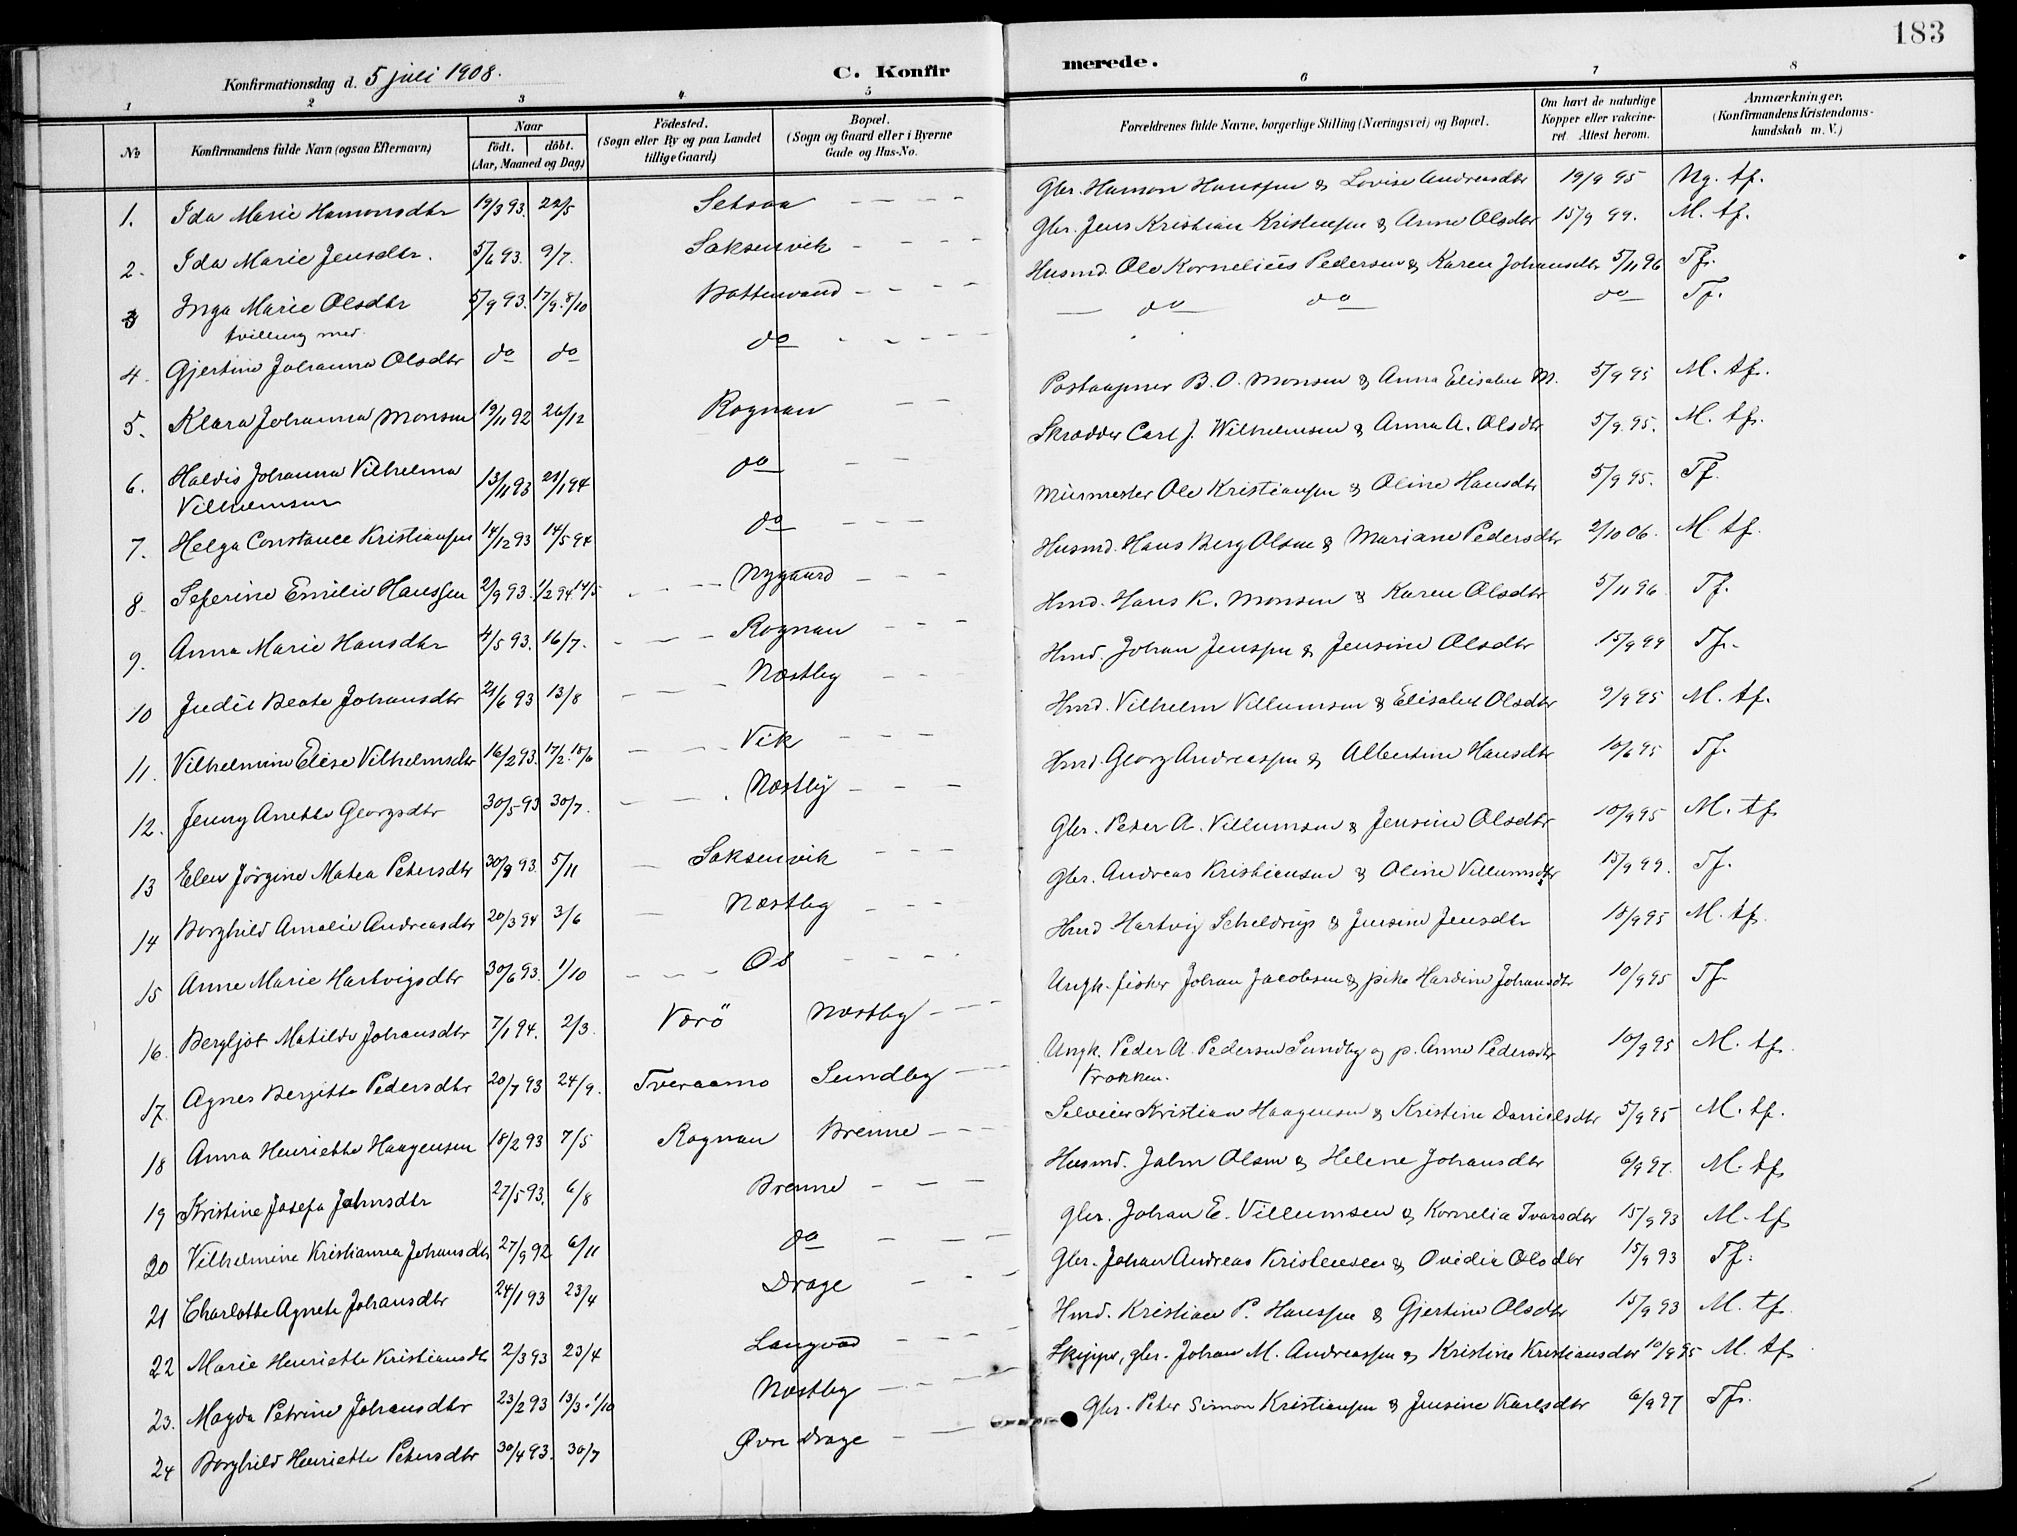 183
Konfirmationsdag d. 5 juli 1908.
C. Konfirmerede.
1 2 3 4 5 6 7 8
No
Konfirmandens fulde Navn (ogsaa Efternavn)
Naar
födt. döbt.
(Aar, Maaned og Dag)
Födested.
(Sogn eller By og paa Landet
tillige Gaard)
Bopæl.
(Sogn og Gaard eller i Byerne
Gade og Hus-No.
Forældrenes fulde Navne, borgerlige Stilling (Næringsvei) og Bopæl.
Om havt de naturlige
Kopper eller vakcine-
ret Attest herom.
Anmærkninger,
(Konfirmandens Kristendoms-
kundskab m. V.)
1. Ida Marie Hamonsdtr 19/3 93. 22/5 Setsaa — — — Gbr. Hamon Hanssen & Lovise Andreasdtr 19/9 95 Ng. tf.
2. Ida Marie Jensdtr. 5/6 93. 9/7. Saksenvik — — — Gbr. Jens Kristian Kristensen & Anne Olsdtr 15/9 99. M. tf.
3 Inga Marie Olsdtr 5/9 93. 17/9. 8/10 Bottenvand — — — Husmd. Ole Kornelius Pedersen & Karen Johansdtr 5/11 96 Tf.
tvilling med
4. Gjertine Johanna Olsdtr do do do — — — do do do Tf.
5. Klara Johanna Monsen 19/11 92 26/12 Rognan — — Postaapner B. O. Monsen & Anna Elisabet M. 5/9 95 M. tf.
6. Haldis Johanna Vilhelma 13/11 93 21/1 94 do — — Skrædder Carl J. Wilhelmsen & Anna A. Olsdtr 5/9. 95. M. tf.
Vilhelmsen
7. Helga Constance Kristiansen 14/12 93 14/5 94 do — — — Murmester Ole Kristiansen & Oline Hansdtr 5/9 95. Tf.
8. Seferine Emilie Hanssen 2/9 93. 1/2 94. 14/5 — — Nygaard — — — Husmd. Hans Berg Olsen & Mariane Pedersdtr 2/10 06. M. tf.
9. Anna Marie Hansdtr 4/5 93. 16/7. — — — Rognan — — — Hmd. Hans K. Monsen & Karen Olsdtr 5/11 96. Tf.
10 Judit Beate Johansdtr 21/6 93 13/8 — — — Næstby Hmd. Johan Jenssen & Jensine Olsdtr 15/9 99 Tf.
11. Vilhelmine Elise Vilhelmsdtr 16/2 93. 17/2. 18/6 — — — Vik — — — Hmd. Vilhelm Villumsen & Elisabet Olsdtr 9/9 95 M. tf.
12. Jenny Anette Georgsdtr 30/5 93 30/7. — — . Næstby — — — Hmd. Georg Andreassen & Albertine Hansdtr 10/6 95 Tf.
13 Elen Jörgine Matea Petersdtr 30/9 93. 5/11 — Saksenvik — — — Gbr. Peter A. Villumsen & Jensine Olsdtr 10/9 95 M. tf
14 Borghild Amalie Andreasdtr 20/3 94 3/6 — Næstby — — — Gbr. Andreas Kristiansen & Oline Villumsdtr 15/9 99. Tf.
15 Anne Marie Hartvigsdtr 30/6 93. 1/10 — — — Os — — — Hmd Hartvig Scheldrup & Jensine Jensdtr 18/9 95 M. tf.
16. Bergljot Matilde Johansdtr 7/1 94. 2/3. Værö Næstby — — Ungk. fisker Johan Jacobsen & pike Hardine Johansdtr 10/9 95 Tf
17. Agnes Bergitte Pedersdtr 20/7 93 24/9. Tveraamo Sundby — — Ungk. Peder A. Pedersen Sundby og p. Anne Pedersdtr 10/9 95 M. tf.
Trokken.
18 Anna Henriette Haagensen 18/2 93 7/5 Rognan Brenne — — — Selveier Kristian Haagensen & Kristine Danielsdtr 5/9 95 M. tf.
19 Kristine Josefa Jahnsdtr 27/5 93. 6/8 Brenne — — — Husmd. Jahn Olsen & Helene Johansdtr 6/9 97. M. tf
20 Vilhelmine Kristianna Johansdtr 27/9 92 6/11 do — — — Gbr. Johan E. Villumsen & Kornelia Ivarsdtr 15/9 93 M. tf
21 Charlotte Agnete Johansdtr 24/1 93 23/4 Drage — — — Gbr. Johan Andreas Kristensen & Ovidia Olsdtr 15/9 93 Tf.
22 Marie Henriette Kristiansdtr 2/3 93 23/4 Langvad — — — Hmd. Kristian P. Hanssen & Gjertine Olsdtr 15/9 93 M. tf
23. Magda Petrine Johansdtr 23/2 93 13/3. 1/10 Næstby — — — Skipper, gbr. Johan M. Andreassen & Kristine Kristiansdtr 10/9 95 M. tf
24 Borghild Henriette Petersdtr 30/4 93. 30/7 Øvre Drage — — Gbr. Peter Simon Kristiansen & Jensine Karlsdtr 6/9 97 Tf.